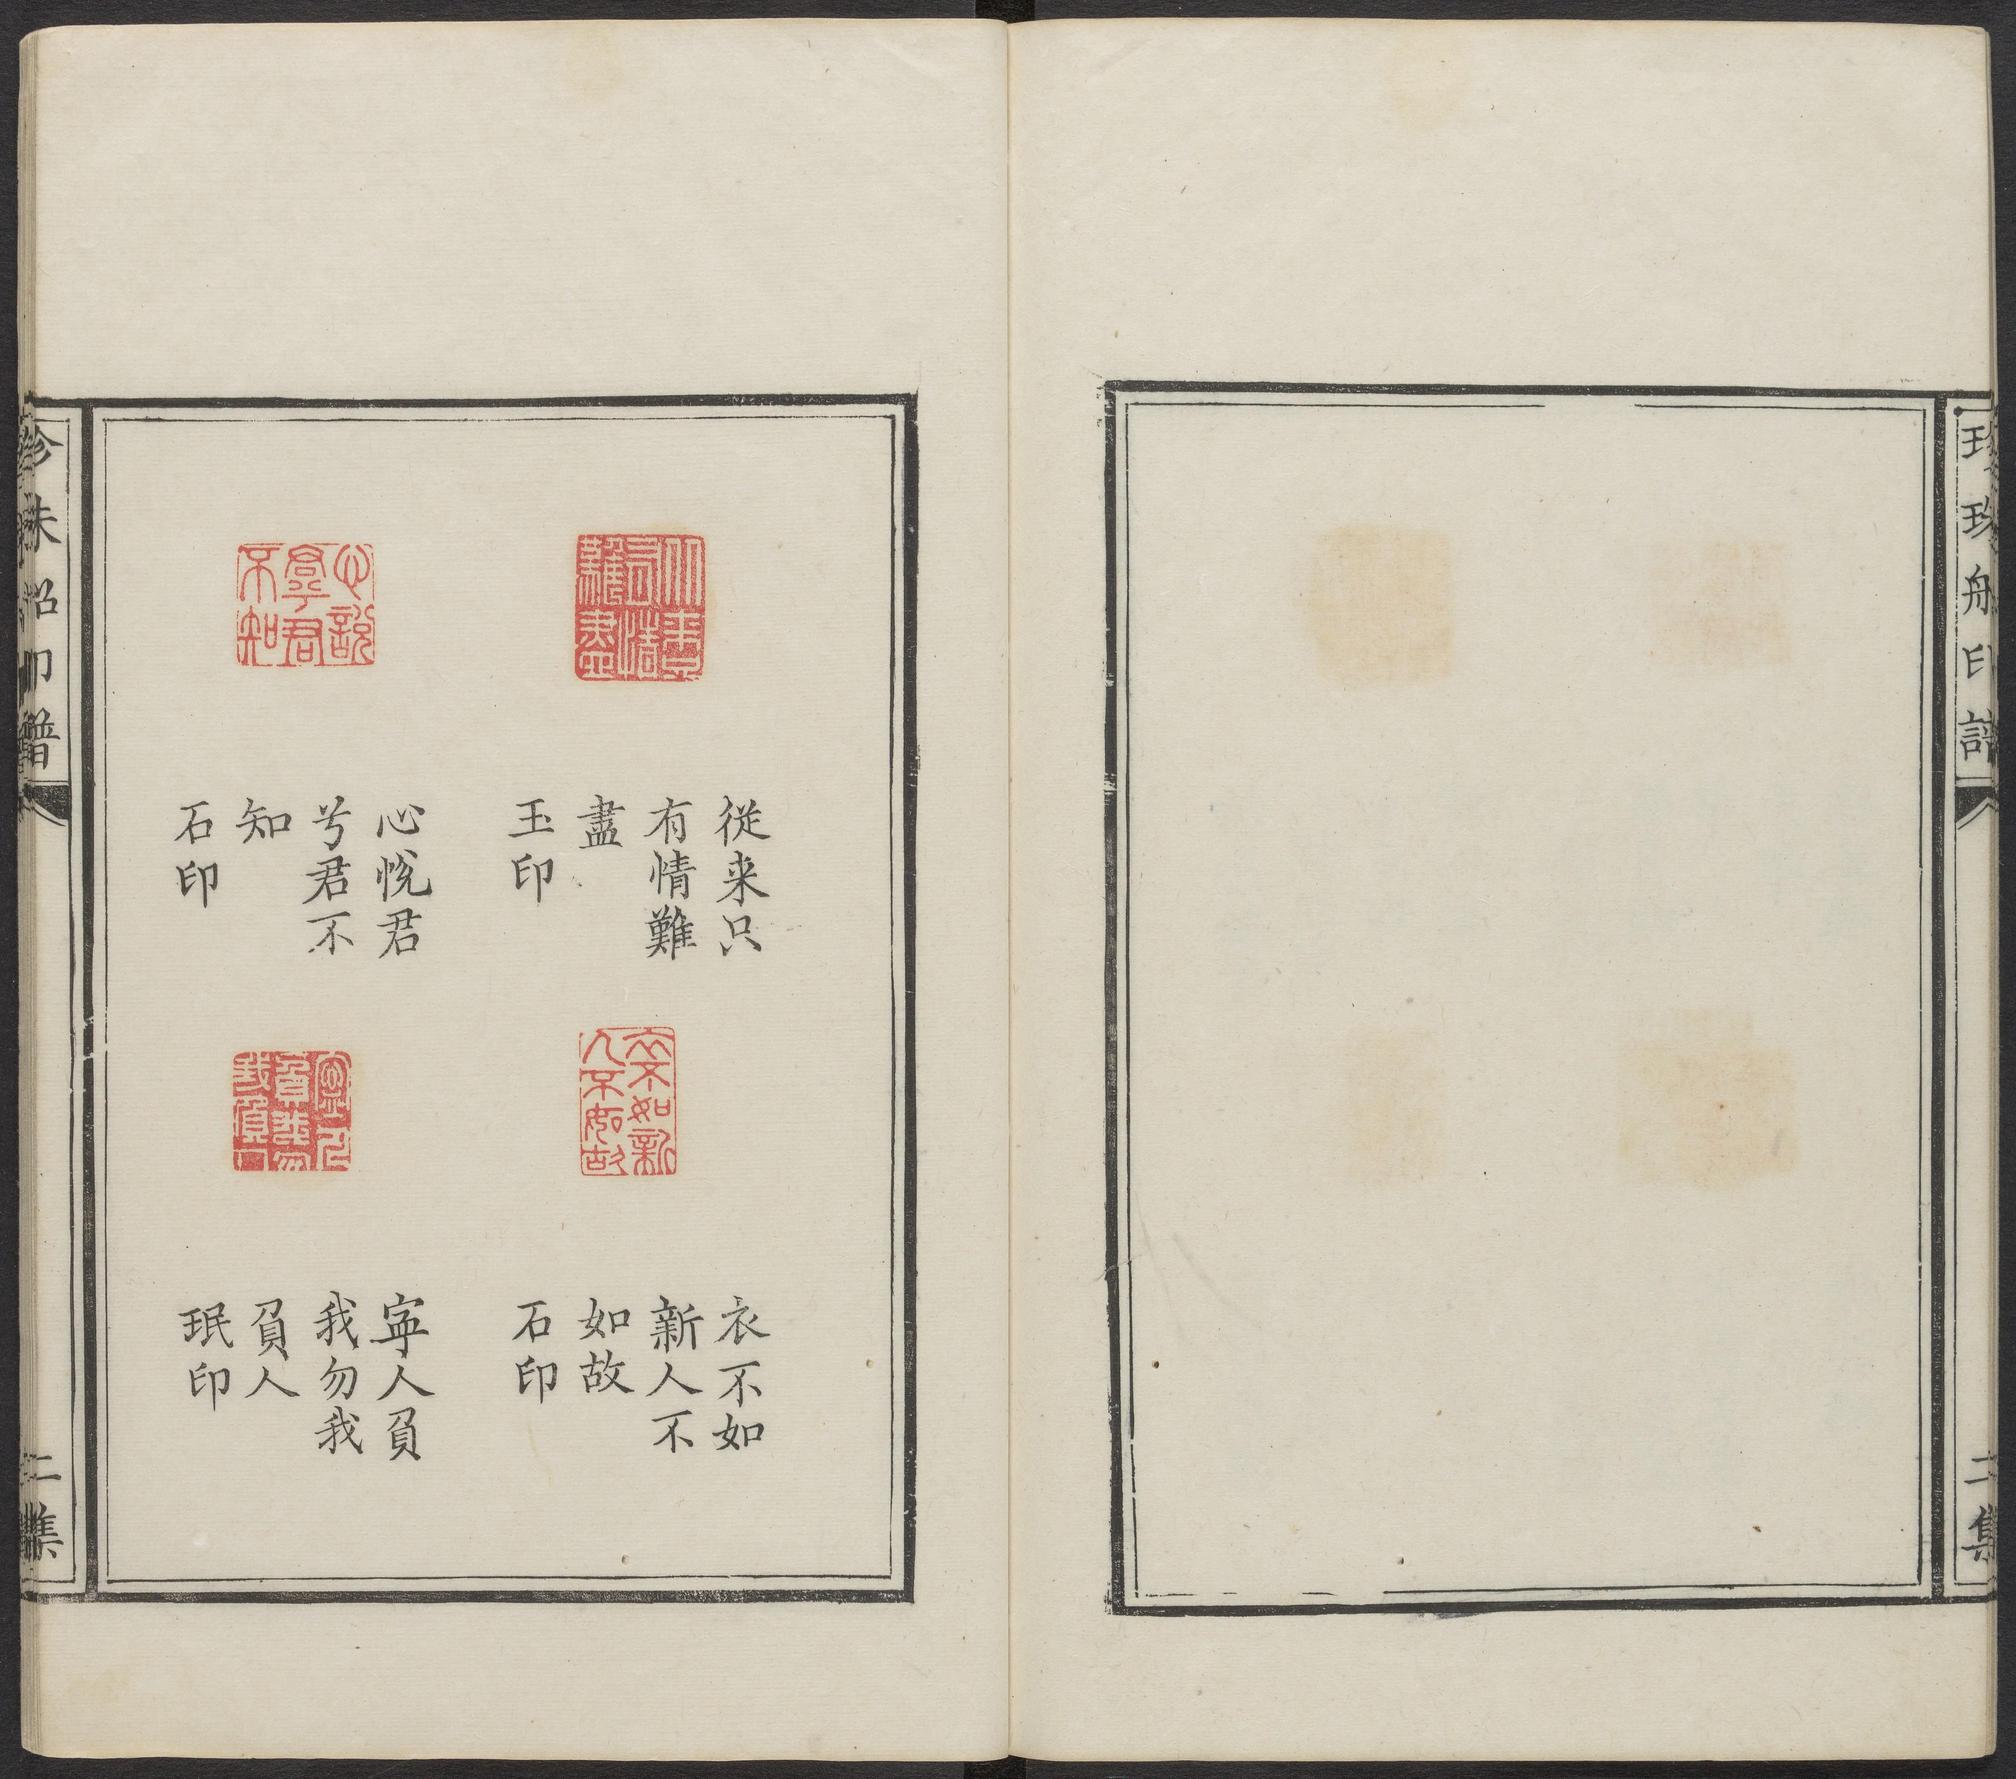 珍珠船印譜
二集
從来只
有情難
盡
玉印
衣不如
新人不
如故
石印
心悅君
兮君不
知
石印
寍人負
我勿我
負人
珉印
珍珠船印譜
二集